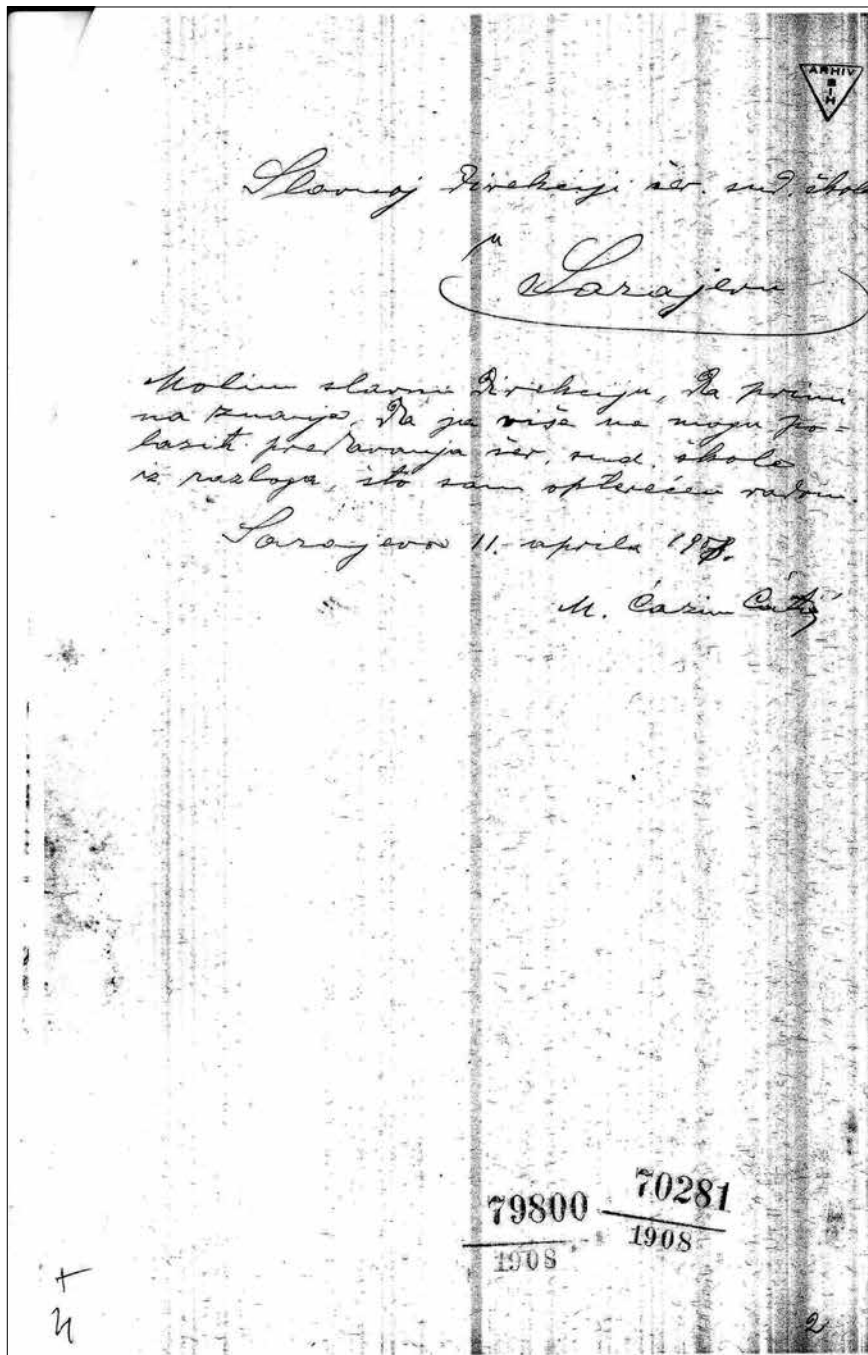 ARHIV
BIH
Slavnoj Direkciji šer. sud. škole
u Sarajevu
Molim slavnu Direkciju, da primi
na znanje, da ja više ne mogu po=
laziti predavanja šer. sud. škole
iz razloga, što sam opterećen radom.
Sarajevo 11. aprila 1908.
M. Ćazim Ćatić
79800 70281
1908 1908
2